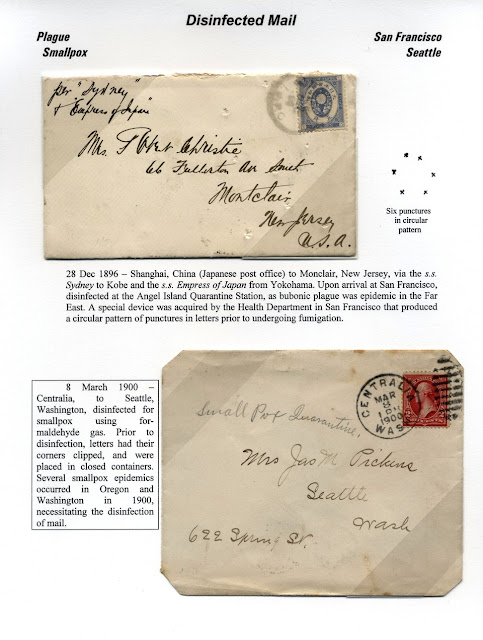 Disinfected Mail
Plague San Francisco
Smallpox Seattle
per "Sydney"
& Empress of Japan"
Mrs. Christie
66 Fullerton Ave South
Montclair
New Jersey
U.S.A.
Six punctures
in circular
pattern
28 Dec 1896 – Shanghai, China (Japanese post office) to Monclair, New Jersey, via the s.s.
Sydney to Kobe and the s.s. Empress of Japan from Yokohama. Upon arrival at San Francisco,
disinfected at the Angel Island Quarantine Station, as bubonic plague was epidemic in the Far
East. A special device was acquired by the Health Department in San Francisco that produced
a circular pattern of punctures in letters prior to undergoing fumigation.
8 March 1900 –
Centralia, to Seattle,
Washington, disinfected for
smallpox using for-
maldehyde gas. Prior to
disinfection, letters had their
corners clipped, and were
placed in closed containers.
Several smallpox epidemics
occurred in Oregon and
Washington in 1900,
necessitating the disinfection
of mail.
CENTRALIA
MAR
8
1900
WASH
Small Pox Quarantine,
Mrs Jas M Pickens
Seattle
Wash
622 Spring St.